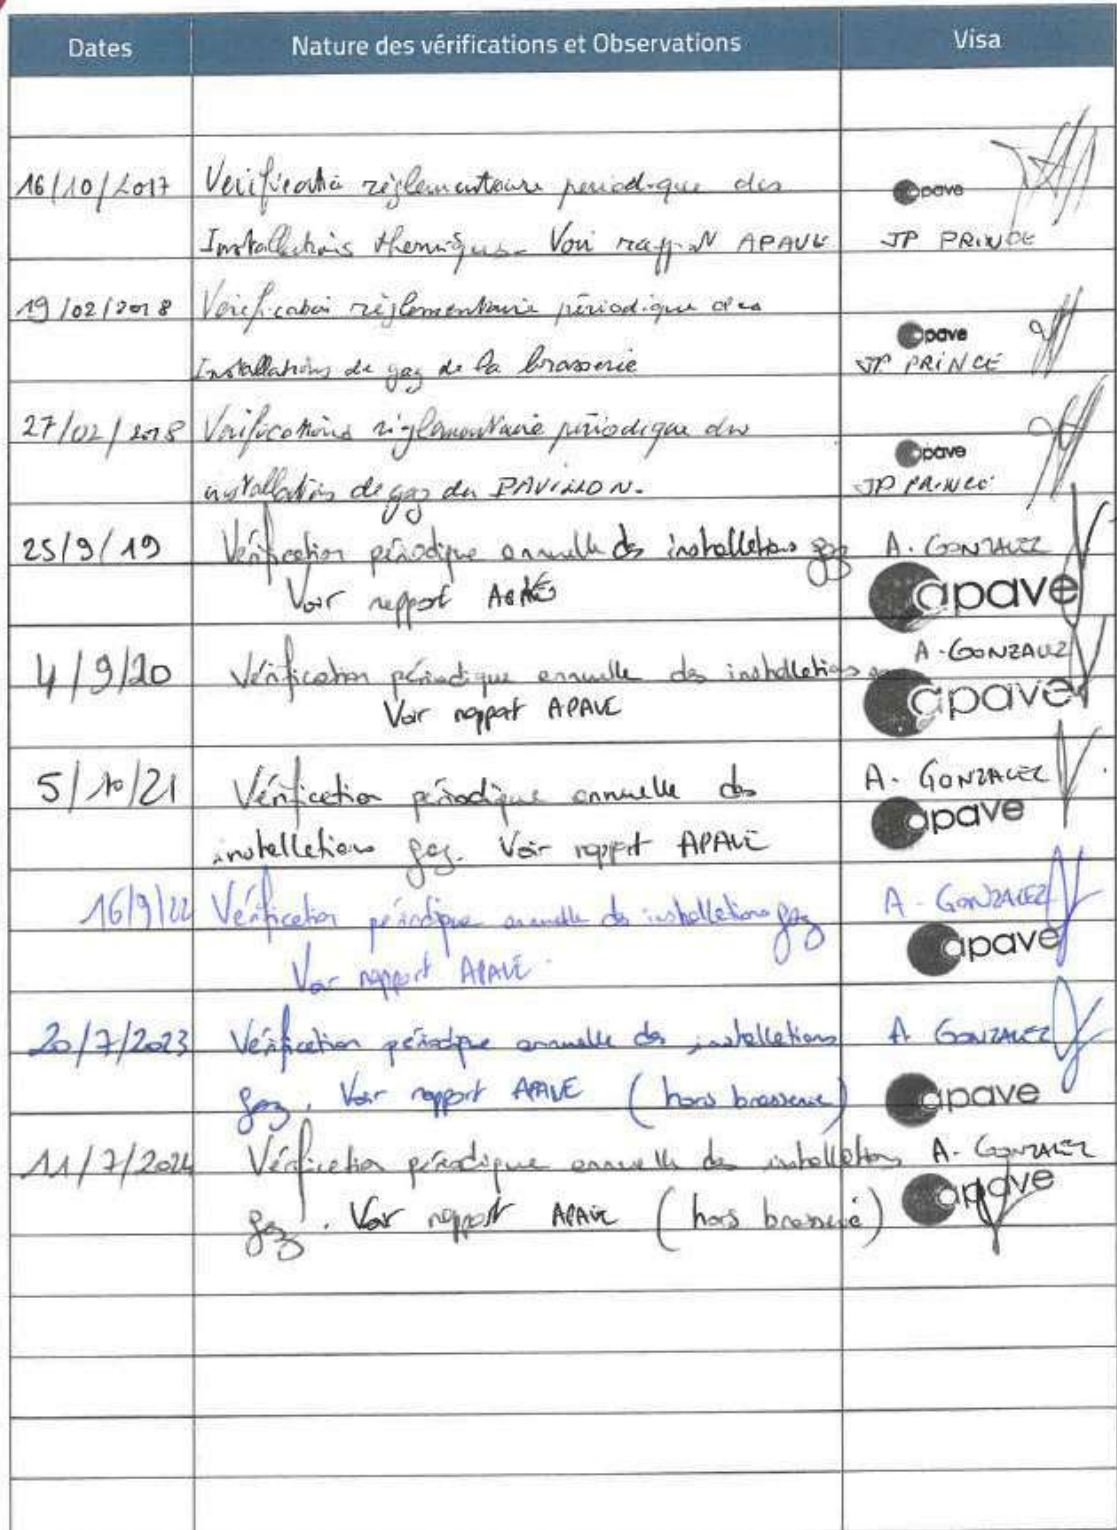 Dates Nature des vérifications et Observations Visa
16/10/2017 Verificatio règlementaire periodique des apave
Installations thermiques. Voir rapp. N APAVE JP PRINCE
19/02/2018 Verification règlementaire périodique des apave
Installations de gaz de la brasserie JP PRINCE
27/02/2018 Verifications règlementaire périodique des apave
installations de gaz du PAVILLON. JP PRINCE
25/9/19 Vérification périodique annuelle des installations gaz A. GONZALEZ
Voir rapport apave
4/9/20 Vérification périodique annuelle des installations A. GONZALEZ
Voir rapport APAVE apave
5/10/21 Vérification périodique annuelle des A. GONZALEZ
installations gaz. Voir rapport APAVE apave
16/9/22 Vérification périodique annuelle des installations gaz A. GONZALEZ
Voir rapport APAVE. apave
20/7/2023 Vérification périodique annuelle des installations A GONZALEZ
gaz. Voir rapport APAVE (hors brasserie) apave
11/7/2024 Vérification périodique annuelle des installations A. GONZALEZ
gaz. Voir rapport APAVE (hors brasserie) apave